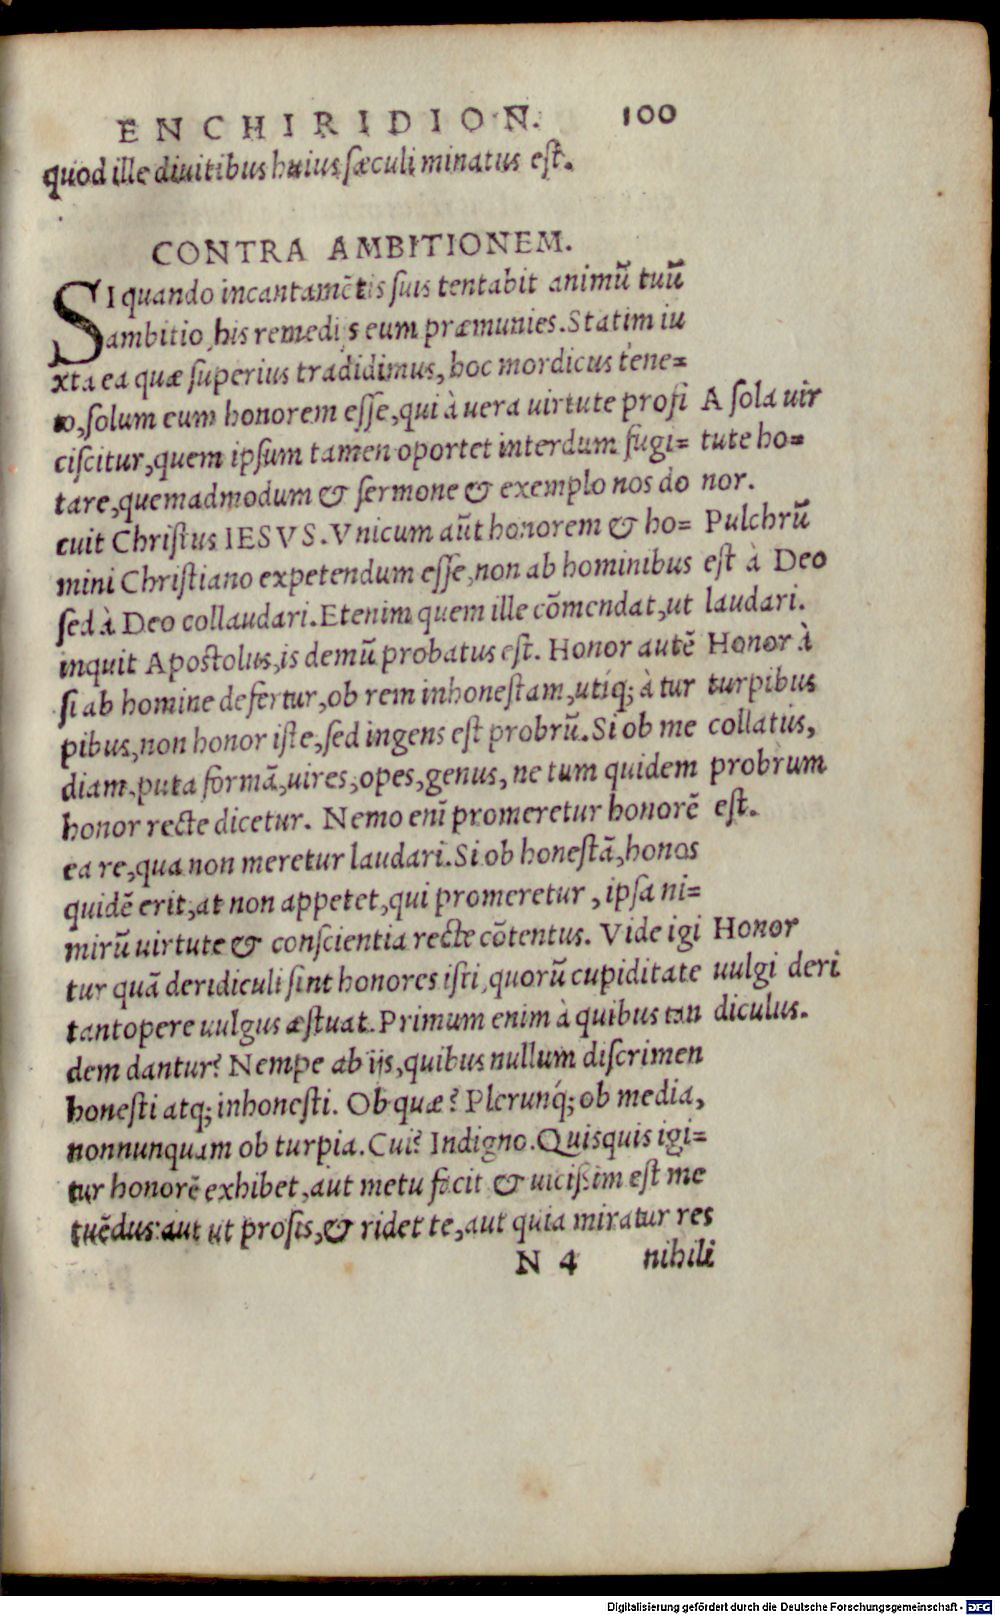 ENCHIRIDION. 100
quod ille diuitibus huius sæculi minatus est.
CONTRA AMBITIONEM.
SI quando incantamẽtis suis tentabit animũ tuũ
ambitio, his remedijs eum præmunies. Statim iu
xta ea quæ superius tradidimus, hoc mordicus tene=
to, solum eum honorem esse, qui à uera uirtute profi
ciscitur, quem ipsum tamen oportet interdum fugi=
tare, quemadmodum & sermone & exemplo nos do
cuit Christus IESVS. Vnicum aũt honorem & ho=
mini Christiano expetendum esse, non ab hominibus
sed à Deo collaudari. Etenim quem ille cõmendat, ut
inquit Apostolus, is demũ probatus est. Honor autẽ
si ab homine defertur, ob rem inhonestam, utiq; à tur
pibus, non honor iste, sed ingens est probrũ. Si ob me
diam, puta formã, uires, opes, genus, ne tum quidem
honor recte dicetur. Nemo enĩ promeretur honorẽ
ea re, qua non meretur laudari. Si ob honestã, honos
quidẽ erit, at non appetet, qui promeretur, ipsa ni=
mirũ uirtute & conscientia recte cõtentus. Vide igi
tur quã deridiculi sint honores isti, quorũ cupiditate
tantopere uulgus æstuat. Primum enim à quibus tan
dem dantur? Nempe ab ijs, quibus nullum discrimen
honesti atq; inhonesti. Ob quæ? Plerunq́; ob media,
nonnunquam ob turpia. Cui? Indigno. Quisquis igi=
tur honorẽ exhibet, aut metu facit & uicissim est me
tuẽdus: aut ut prosis, & ridet te, aut quia miratur res
N 4 nihili
A sola uir
tute ho=
nor.
Pulchrũ
est à Deo
laudari.
Honor à
turpibus
collatus,
probrum
est.
Honor
uulgi deri
diculus.
Digitalisierung gefördert durch die Deutsche Forschungsgemeinschaft - DFG